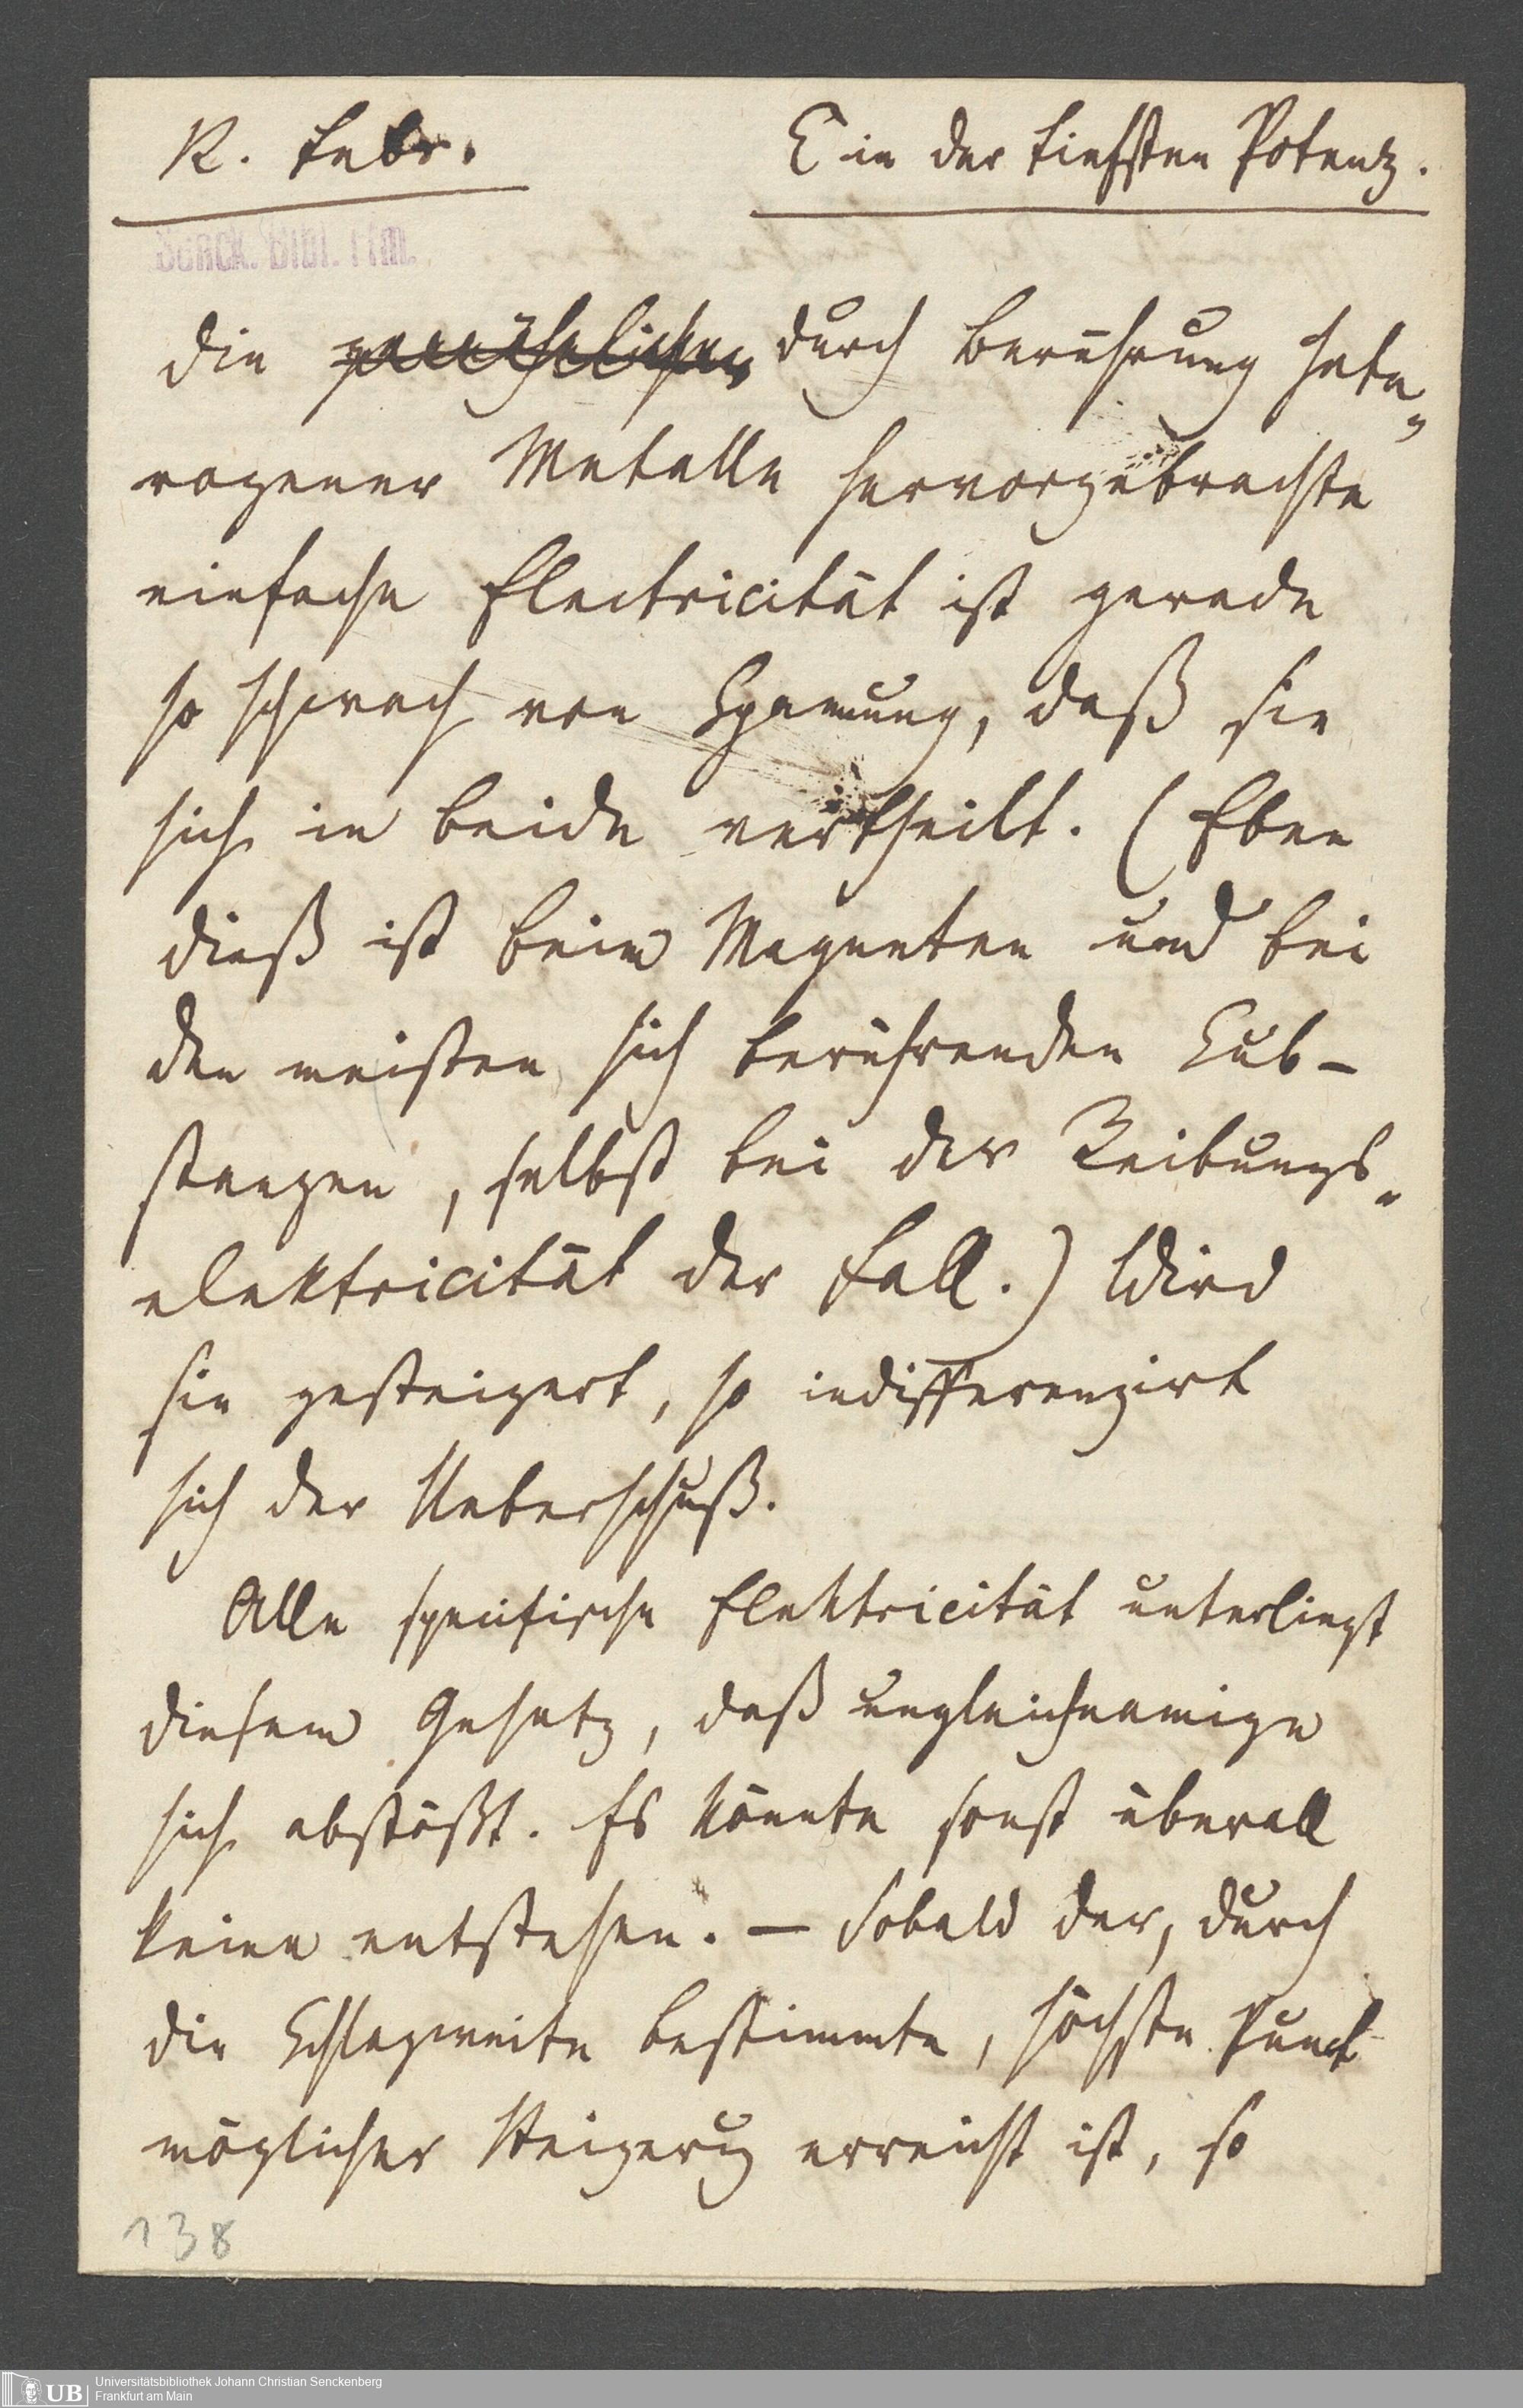 R. Febr.
E in der tiefsten Potenz.
Senck. Bibl. Ffm.
die gewöhnlichen durch Berührung hete„
rogener Metalle hervorgebrachte
einfache Electricität ist gerade
so schwach von Spannung, daß sie
sich in beide vertheilt. (Eben
dieß ist beim Magneten und bei
den meisten sich berührenden Sub-
stanzen, selbst bei der Reibungs„
elektricität der Fall.) Wird
sie gesteigert, so indifferenzirt
sich der Ueberschuß.
Alle specifische Elektricität unterliegt
diesem Gesetz, daß ungleichnamige
sich abstößt. Es könnte sonst überall
keine entstehen. — Sobald der, durch
die Schlagweite bestimmte, höchste Punct
möglicher Steigerung erreicht ist, so
138
UB
Universitätsbibliothek Johann Christian Senckenberg
Frankfurt am Main